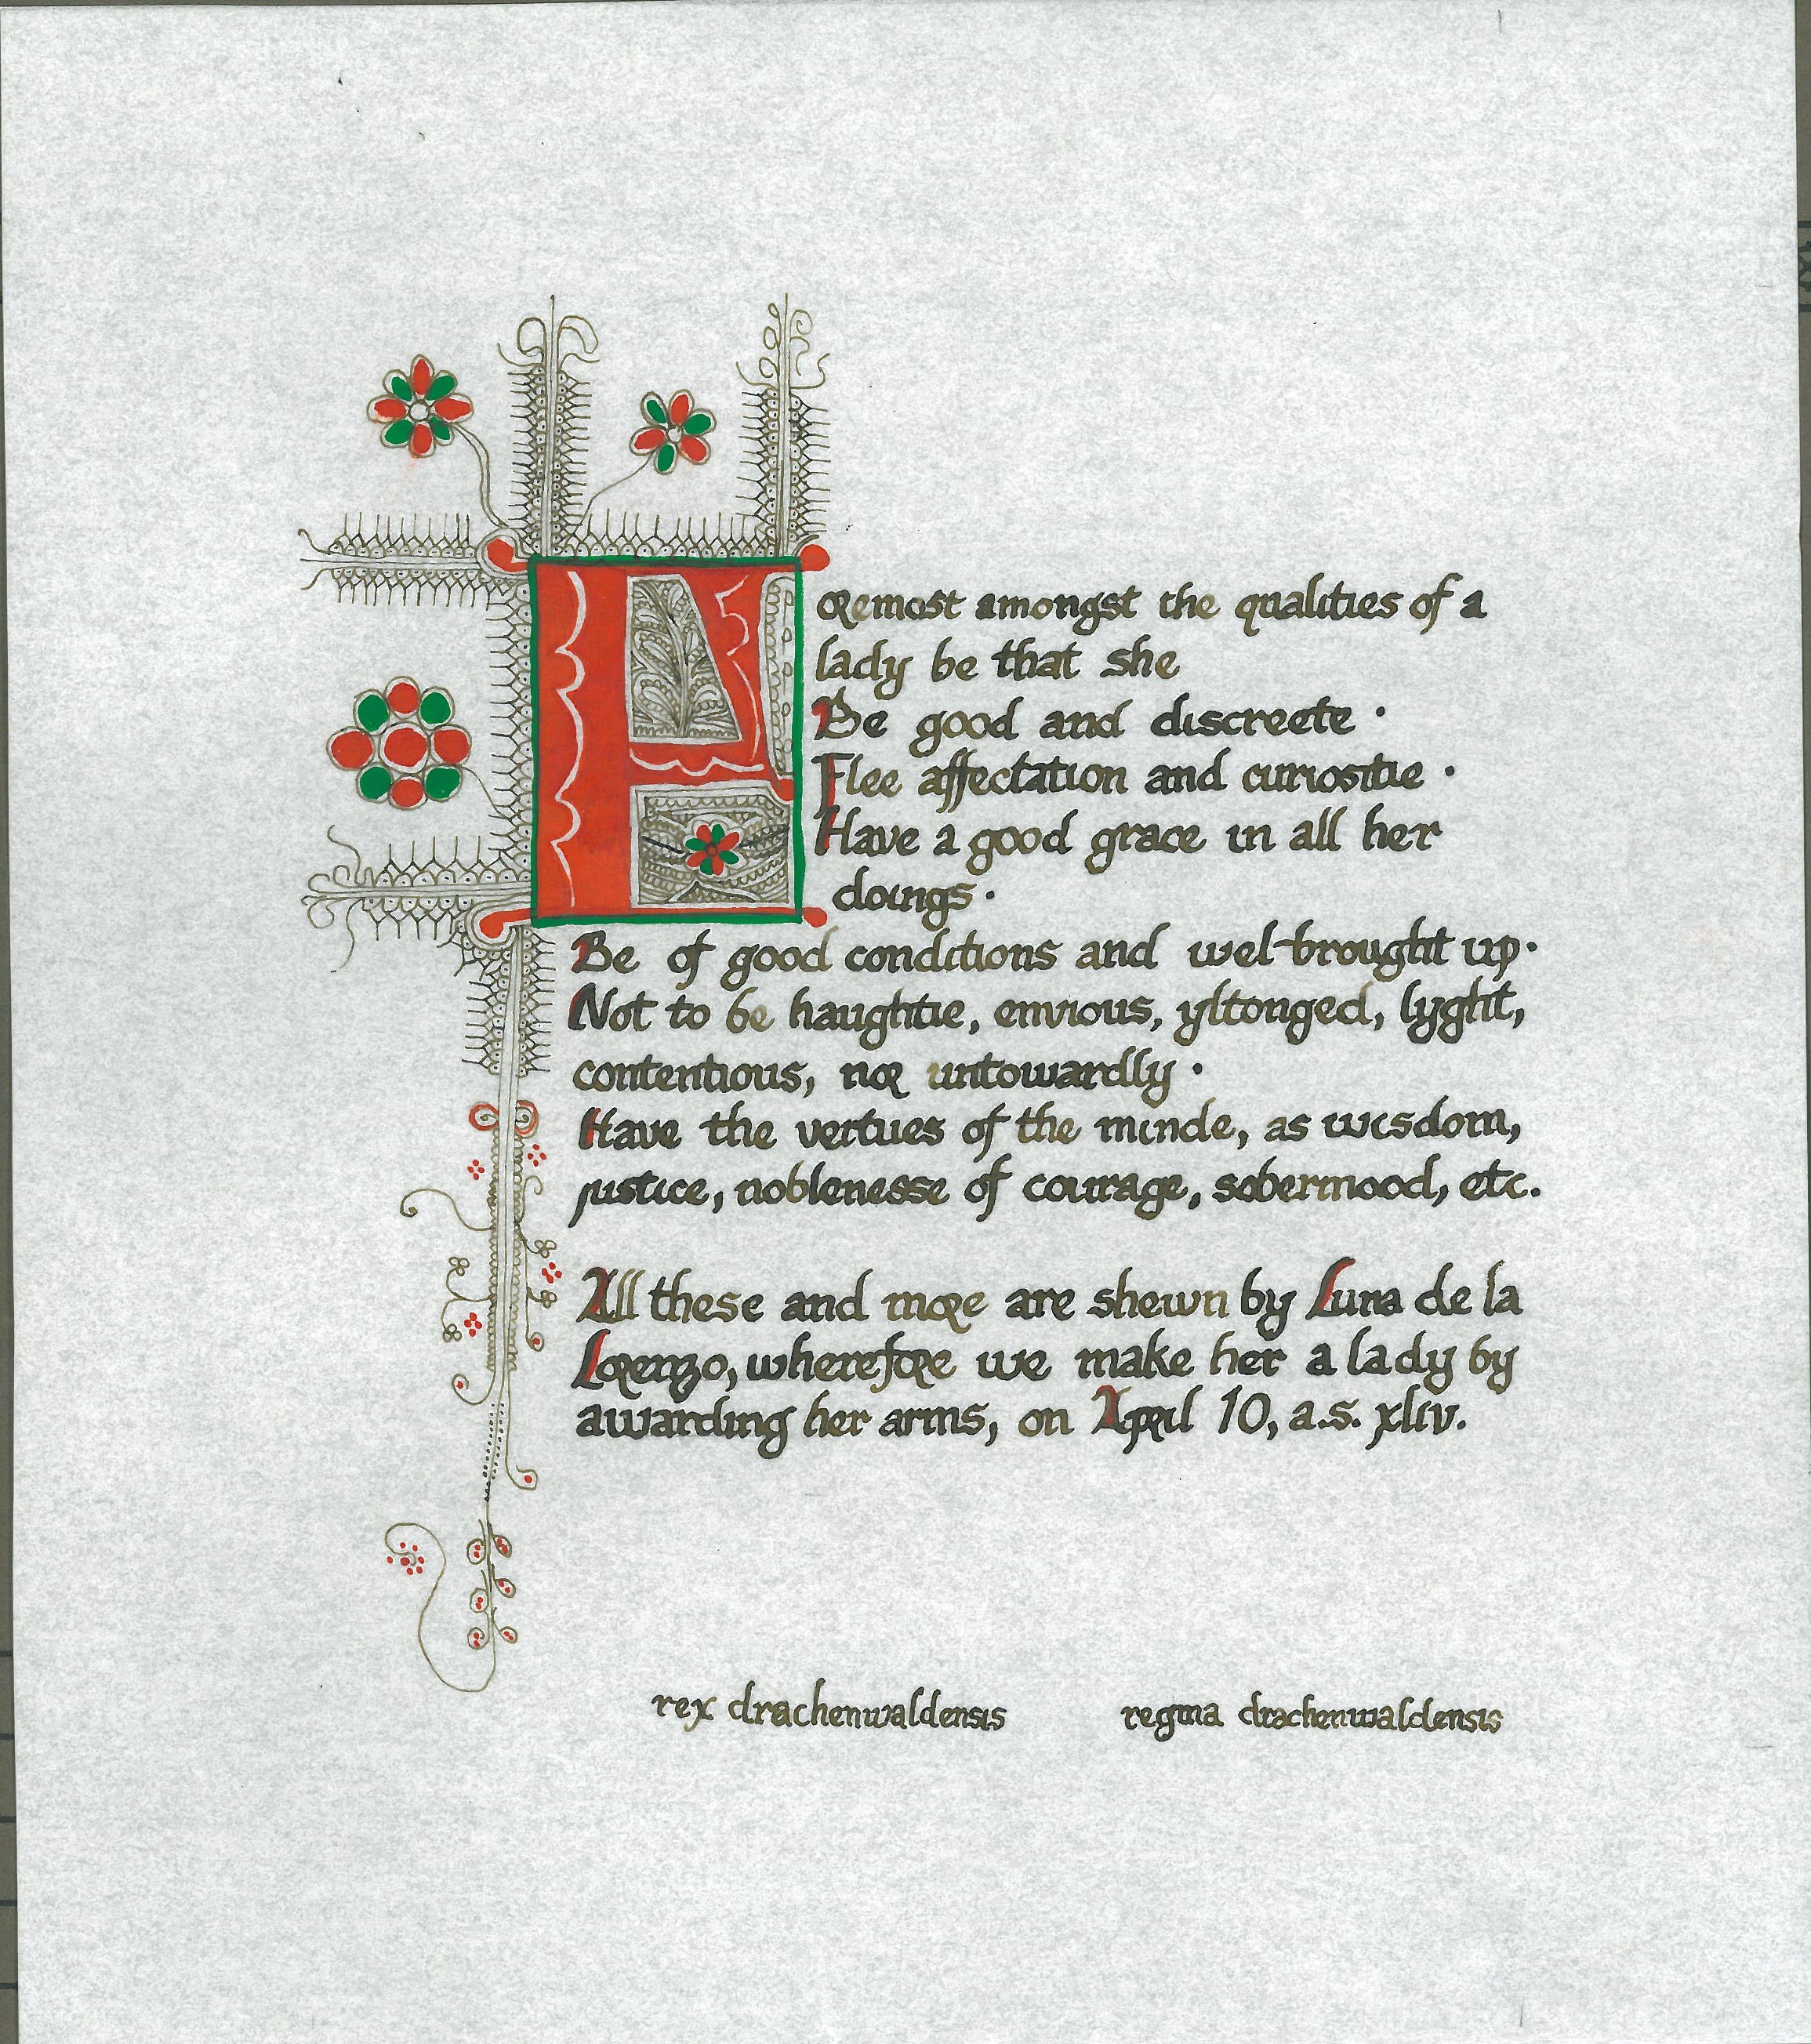 Foremost amongst the qualities of a
lady be that she
Be good and discreete ·
Flee affectation and curiositie ·
Have a good grace in all her
doings ·
Be of good conditions and wel-brought up ·
Not to be haughtie, envious, yltonged, lyght,
contentious, nor untowardly ·
Have the vertues of the minde, as wisdom,
justice, noblenesse of courage, sobermood, etc.
All these and more are shewn by Luna de la
Lorenzo, wherefore we make her a lady by
awarding her arms, on April 10, a.s. xliv.
rex drachenwaldensis regina drachenwaldensis